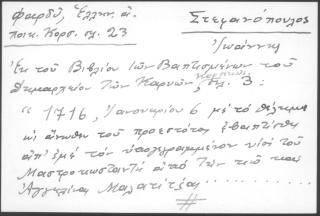 Φαρδύ, Ἑλλην. ἀ-
ποικ. Κορσ. σλ. 23
Στεφανόπουλος
Ἰωάννης
Ἐκ τοῦ Βιβλίου τῶν Βαπτισμένων τοῦ
Δημαρχείου τῶν Καρυῶν, σλ. 3:
"1716, Ἰανουαρίου 6 μετὸ θέλημα
καὶ ἄνωθεν τοῦ προεστότος ἐβαπτίσθη
ἀπ' ἐμὲ τὸν ὑπογεγραμμένον υἱὸς τοῦ
Μαστροκωσταντῆ ἀπὸ τὴν
Ἀγγελίνα Μαλατέτζα